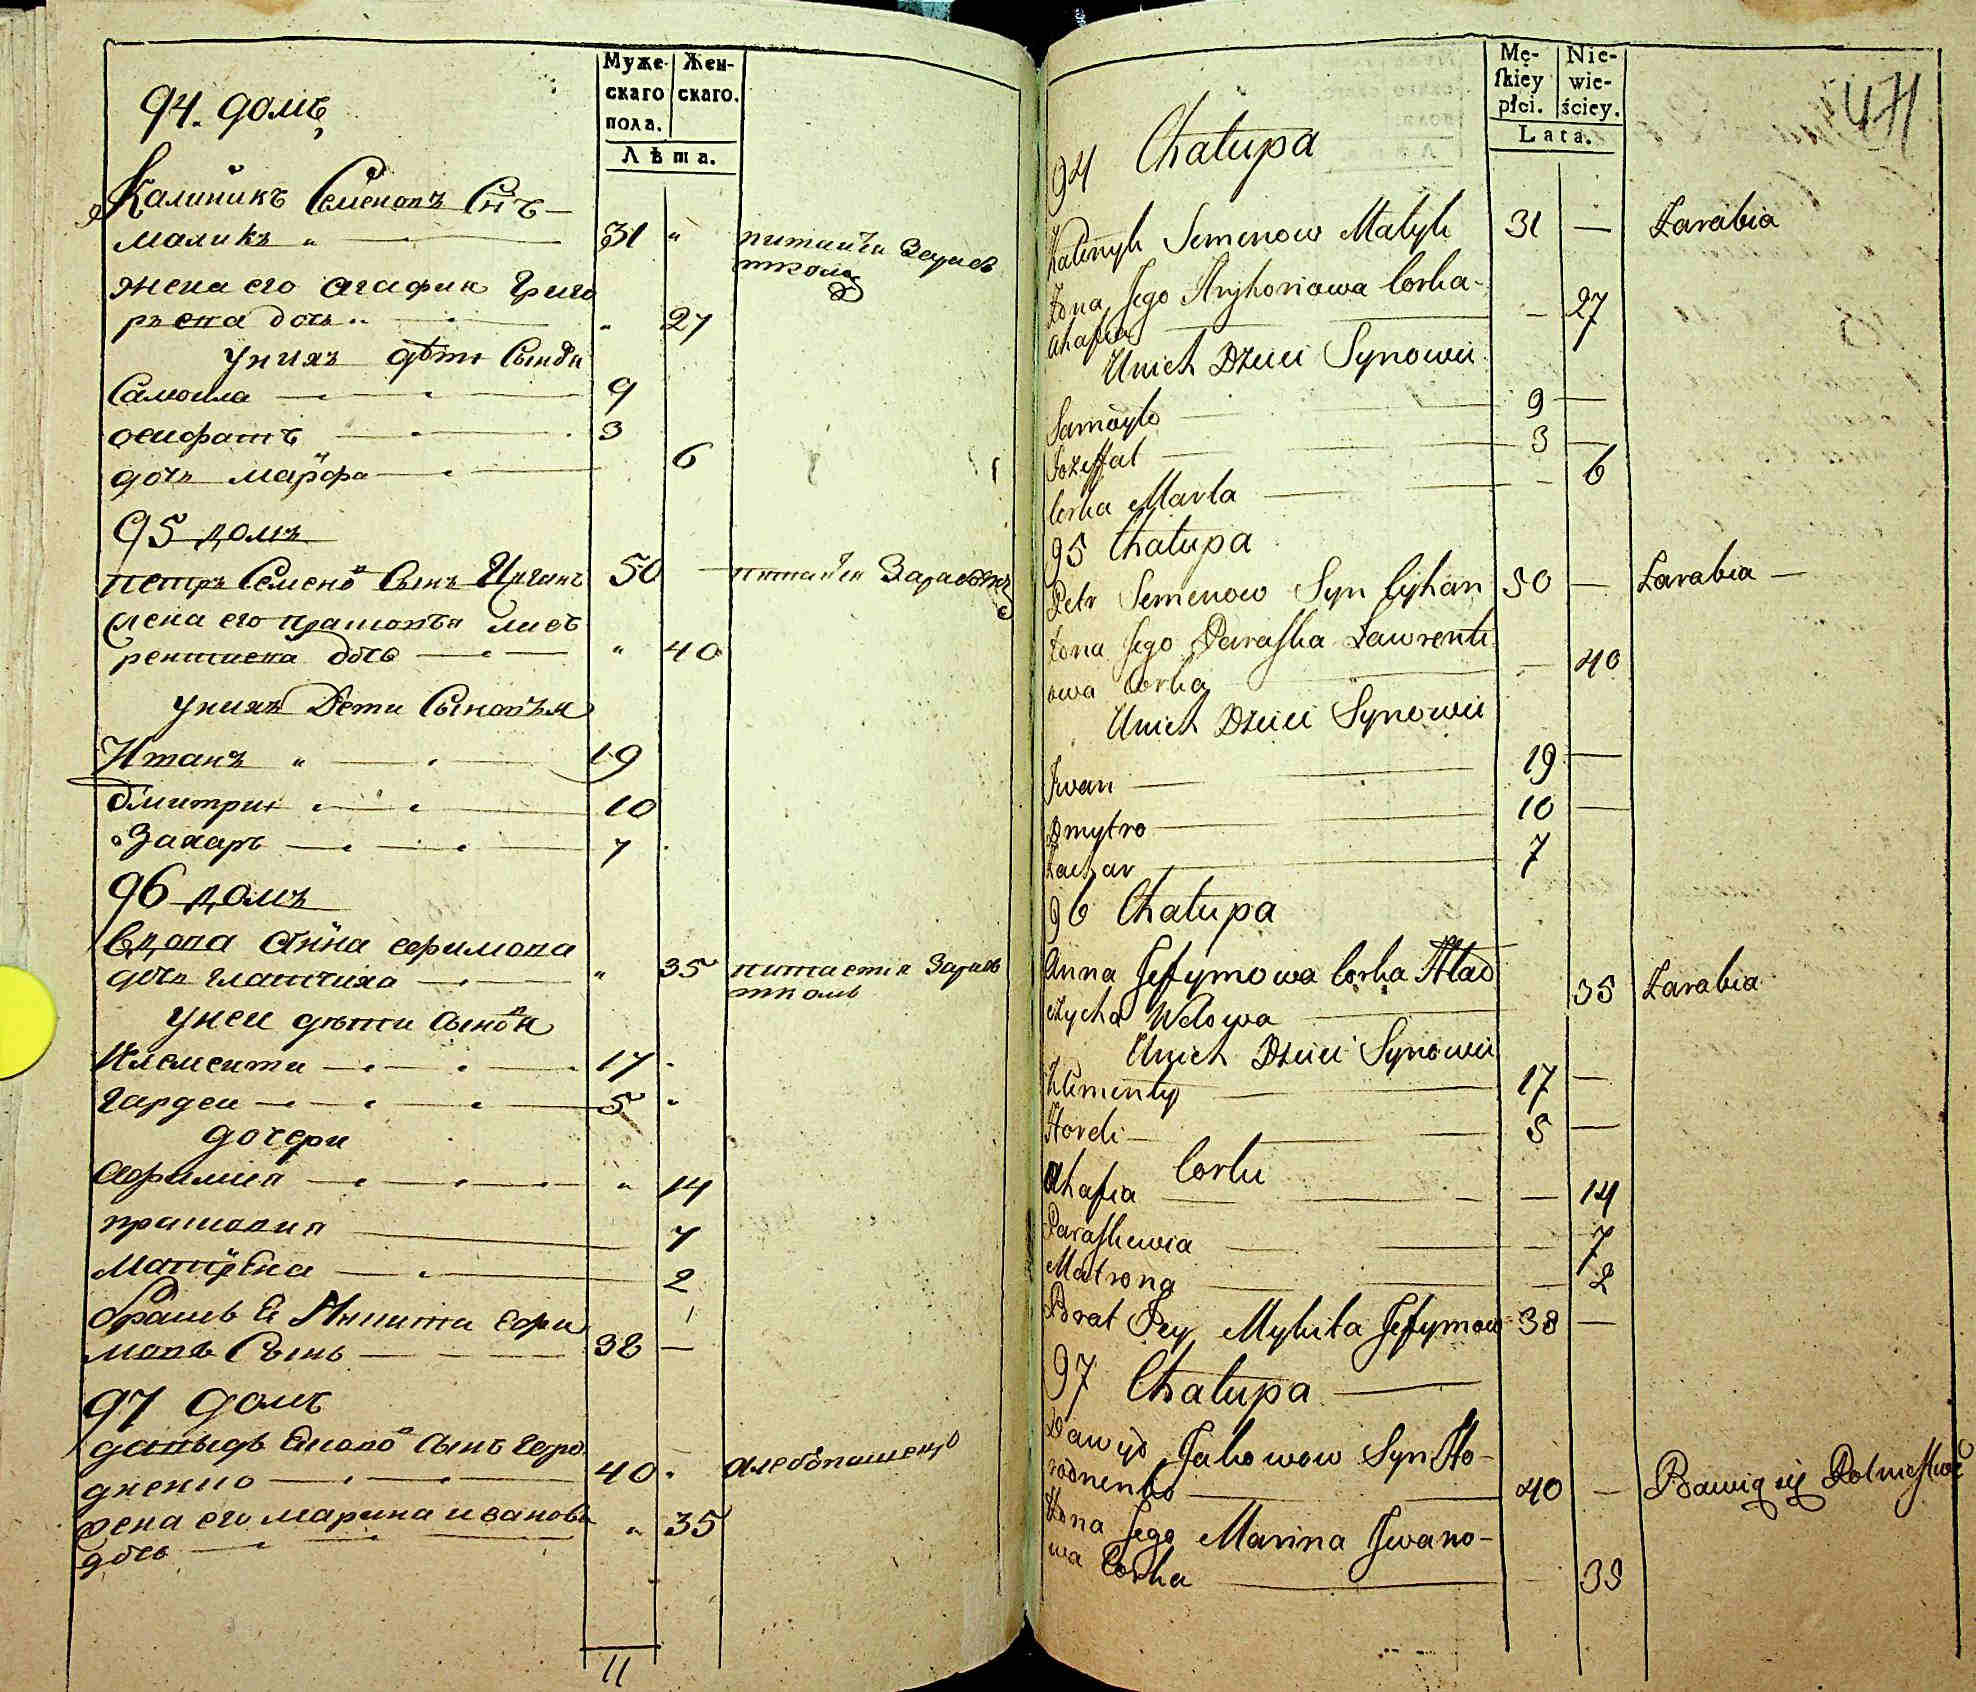 Муже-
скаго
пола.
Жен-
скаго.
Лѣта.
94. домъ
Калиникъ Семеновъ Снъ
маликъ 31 питаица Зараб
тком
жена его агафия Григо
рьева дочь 27
у нихъ дѣти Сынове
Самоила 9
осифатъ 3
дочь марфа 6
95 домъ
петръ Семеновъ Сынъ Циганъ 50 питаица Заработк
жена его прасковья лав
рентиева дочь 40
у нихъ Дети Сыновья
Иванъ 19
дмитрии 10
Захаръ 7
96 домъ
вдова Анна ефимова
дочь гладчиха 35 питается Зараб
тком
у неи дѣти Сыновя
Клементи 17
гардеи 5
дочери
Афимия 14
прасковия 7
матрена 2
братъ Ея Микита ефи
мовъ Сынъ 38
97 домъ
давыдъ Яковов Сынъ горо
дненко 40 хлебопашецъ
жена его марина иванова
дочь 35
11
Mę-
skiey
płci.
Nie-
wie-
ściey.
Lata.
471
94 Chatupa
Kalenyk Semenow Malyk 31 — Zarabia
Zona Jego Hryhoriowa Corka
Ahafia — 27
Unich Dzieci Synowii
Samoyło 9 —
Jozeffat 3 —
Corka Marta — 6
95 Chatupa
Petr Semenow Syn Cyhan 50 — Zarabia —
Zona Jego Paraska Lawrenti
owa Corka — 40
Unich Dzieci Synowii
Iwan 19 —
Dmytro 10 —
Zachar 7
96 Chatupa
Anna Jefymowa Corka Hlad
czycha Wdowa 35 Zarabia
Unich Dzieci Synowii
Klementy 17 —
Hordi 5 —
Corki
Ahafia — 14
Paraskewia — 7
Matrona — 2
Brat Jey Mykita Jefymow 38 —
97 Chatupa —
Dawyd Jakowow Syn Ho-
rodnenko 40 — Bawią się Rolnictwe
Zona Jego Marina Iwano-
wa Corka 35